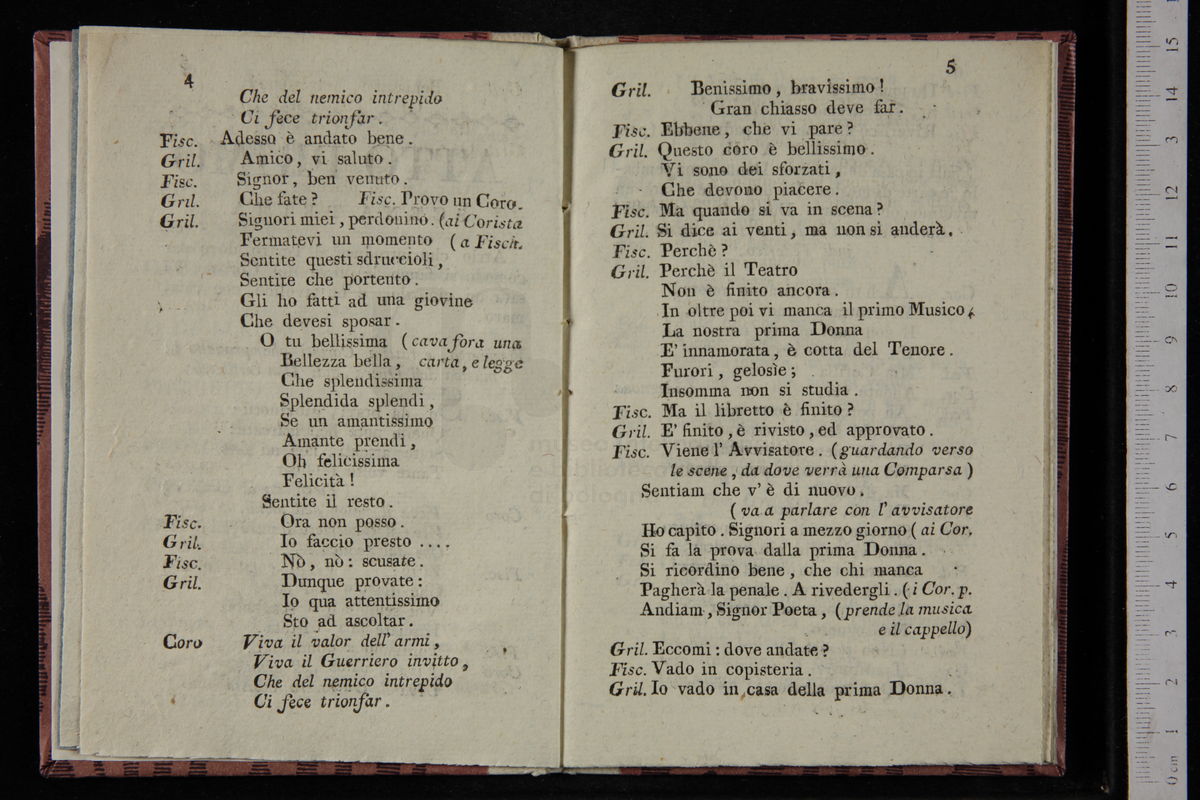 4
Che del nemico intrepido
Ci fece trionfar.
Fisc. Adesso è andato bene.
Gril. Amico, vi saluto.
Fisc. Signor, ben venuto.
Gril. Che fate? Fisc. Provo un Coro.
Gril. Signori miei, perdonino. (ai Corista
Fermatevi un momento (a Fisch.
Sentite questi sdruccioli,
Sentite che portento.
Gli ho fatti ad una giovine
Che devesi sposar.
O tu bellissima (cava fora una
Bellezza bella, carta, e legge
Che splendissima
Splendida splendi,
Se un amantissimo
Amante prendi,
Oh felicissima
Felicità!
Sentite il resto.
Fisc. Ora non posso.
Gril. Io faccio presto ....
Fisc. Nò, nò: scusate.
Gril. Dunque provate:
Io qua attentissimo
Sto ad ascoltar.
Coro Viva il valor dell' armi,
Viva il Guerriero invitto,
Che del nemico intrepido
Ci fece trionfar.
5
Gril. Benissimo, bravissimo!
Gran chiasso deve far.
Fisc. Ebbene, che vi pare?
Gril. Questo coro è bellissimo.
Vi sono dei sforzati,
Che devono piacere.
Fisc. Ma quando si va in scena?
Gril. Si dice ai venti, ma non si anderà.
Fisc. Perchè?
Gril. Perchè il Teatro
Non è finito ancora.
In oltre poi vi manca il primo Musico;
La nostra prima Donna
E' innamorata, è cotta del Tenore.
Furori, gelosìe;
Insomma non si studia.
Fisc. Ma il libretto è finito?
Gril. E' finito, è rivisto, ed approvato.
Fisc. Viene l' Avvisatore. (guardando verso
le scene, da dove verrà una Comparsa)
Sentiam che v' è di nuovo.
(va a parlare con l' avvisatore
Ho capito. Signori a mezzo giorno (ai Cor.
Si fa la prova dalla prima Donna.
Si ricordino bene, che chi manca
Pagherà la penale. A rivedergli. (i Cor. p.
Andiam, Signor Poeta, (prende la musica
e il cappello)
Gril. Eccomi: dove andate?
Fisc. Vado in copisteria.
Gril. Io vado in casa della prima Donna.
0 cm 1 2 3 4 5 6 7 8 9 10 11 12 13 14 15